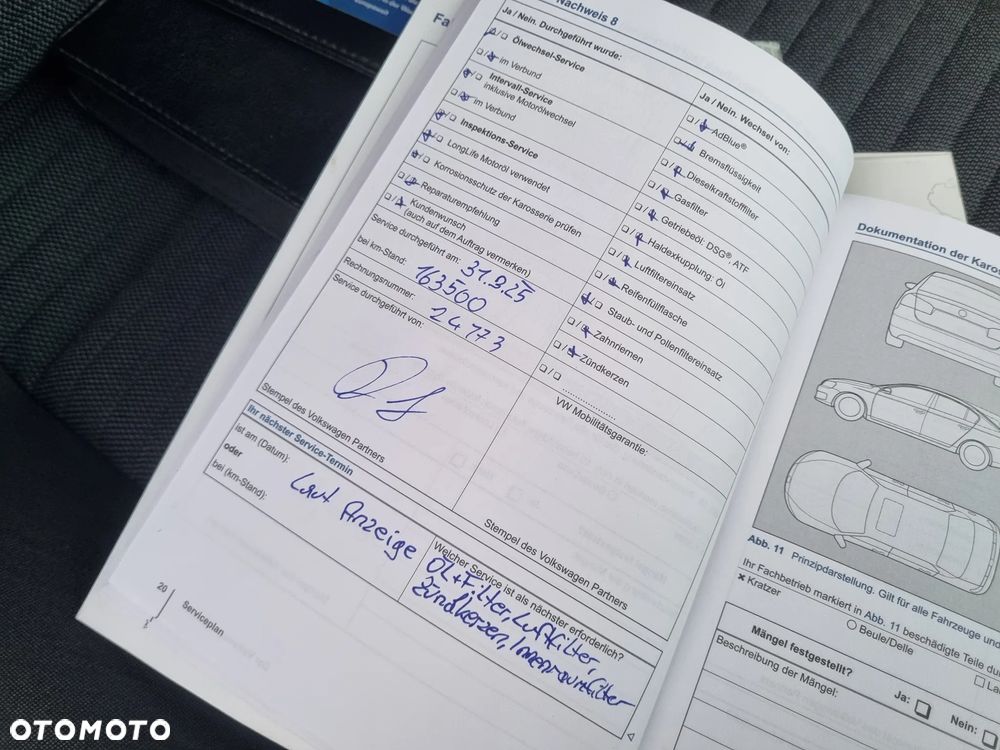 Nachweis 8
Ja / Nein. Durchgeführt wurde:
Ölwechsel-Service
im Verbund
Intervall-Service
inklusive Motorölwechsel
im Verbund
Inspektions-Service
LongLife Motoröl verwendet
Korrosionsschutz der Karosserie prüfen
Reparaturempfehlung
Kundenwunsch
(auch auf dem Auftrag vermerken)
Service durchgeführt am: 31.9.25
bei km-Stand: 163500
Rechnungsnummer: 24773
Service durchgeführt von:
Stempel des Volkswagen Partners
Ja / Nein. Wechsel von:
AdBlue®
Bremsflüssigkeit
Dieselkraftstofffilter
Gasfilter
Getriebeöl: DSG®, ATF
Haldexkupplung: Öl
Luftfiltereinsatz
Reifenfüllflasche
Staub- und Pollenfiltereinsatz
Zahnriemen
Zündkerzen
VW Mobilitätsgarantie:
Stempel des Volkswagen Partners
Ihr nächster Service-Termin
ist am (Datum):
oder
bei (km-Stand):
Laut Anzeige
Welcher Service ist als nächster erforderlich?
ÖL+Filter, Luftfilter,
Zündkerzen, Innenraumfilter
20
Serviceplan
Fa
Dokumentation der Karos
Abb. 11 Prinzipdarstellung. Gilt für alle Fahrzeuge un
Ihr Fachbetrieb markiert in Abb. 11 beschädigte Teile du
Kratzer
Beule/Delle
La
Mängel festgestellt?
Ja:
Nein:
Beschreibung der Mängel:
OTOMOTO